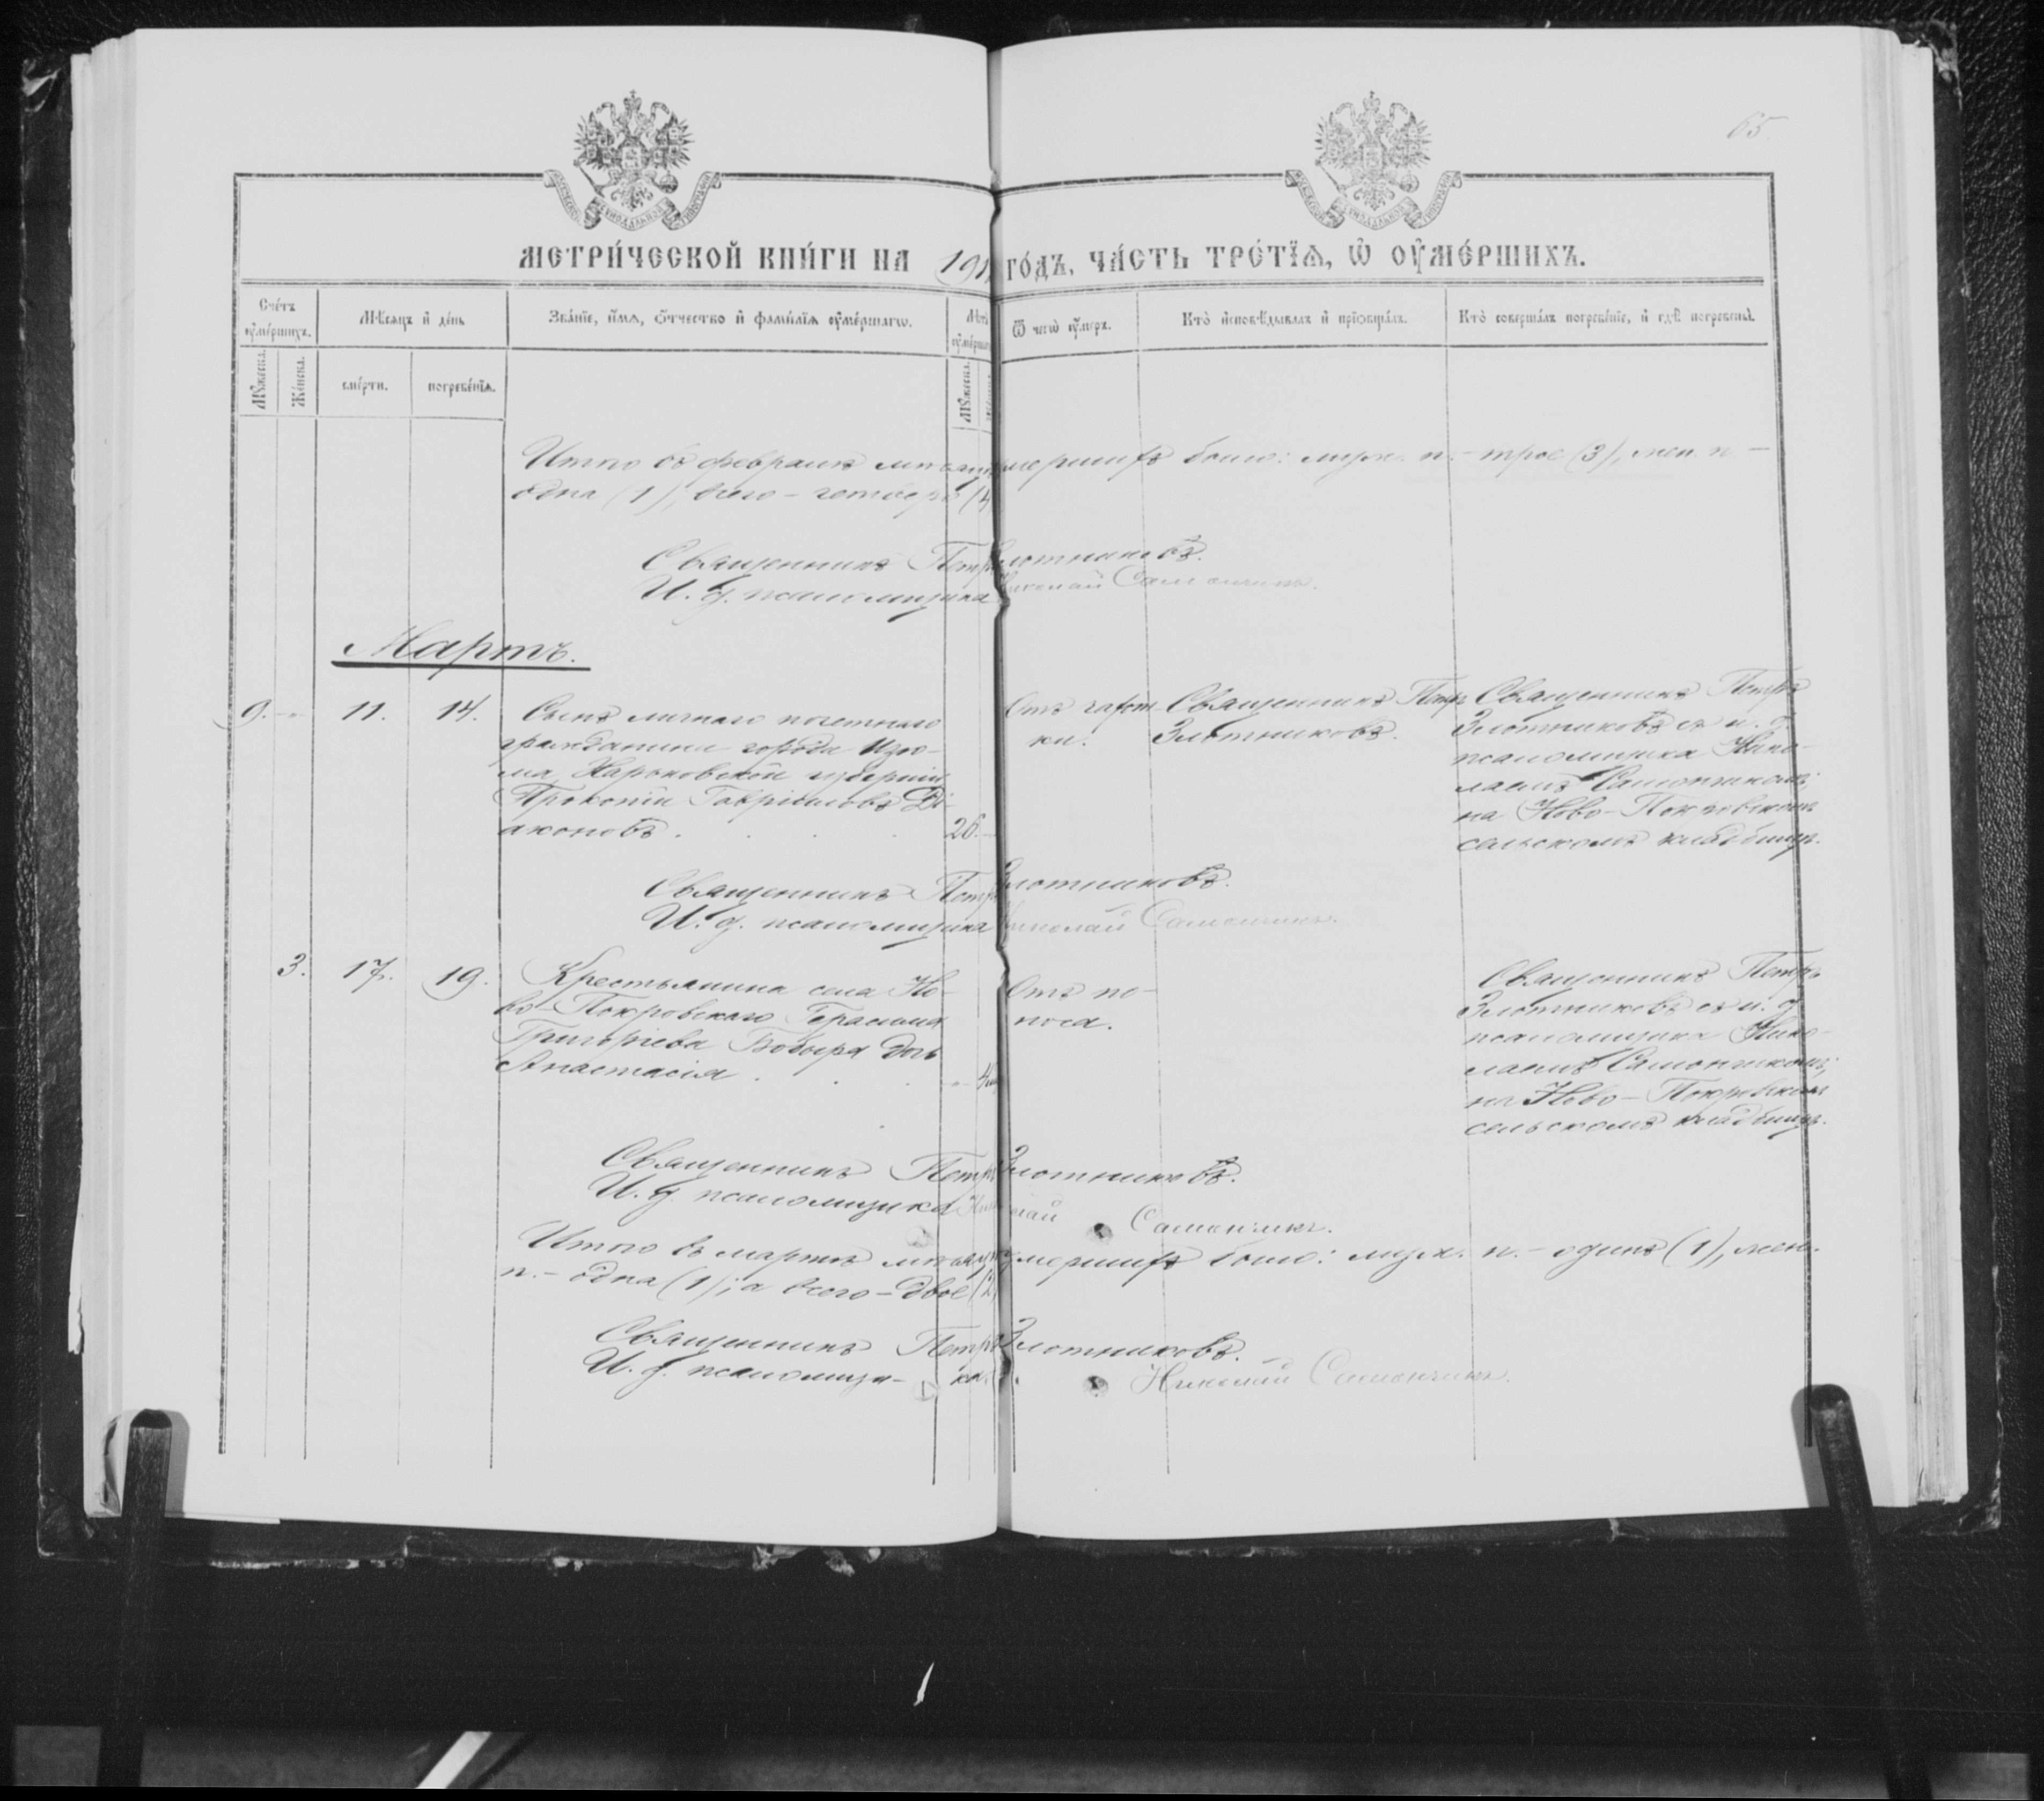 65.
МЕТРИ́ЧЕСКОЙ КНИ́ГИ НА 191 ГО́ДЪ, ЧА́СТЬ ТРЕ́ТЇѦ, Ѡ҆ ОУ҆МЕ́РШИХЪ.
Сче́тъ оу҆ме́ршихъ.
Мѣ́сѧцъ и҆ де́нь
Зва́нїе, и҆́мѧ, ѻ҆́тчество и҆ фами́лїѧ оу҆ме́ршагѡ.
Ѿ чегѡ̀ оу҆́меръ.
Кто̀ и҆сповѣ́дывалъ и҆ прїѡбща́лъ.
Кто̀ соверша́лъ погребе́нїе, и҆ гдѣ̀ погребены̀.
Мꙋ́жеска.
Же́нска.
сме́рти.
погребе́нїѧ.
Мꙋ́жеска.
Итого въ февралѣ мѣсяцѣ умершихъ было: муж. п. – трое (3), жен. п. –
одна (1), всего – четверо (4
Священникъ Петръ Злотниковъ.
И. д. псаломщика Николай Самончикъ.
Мартъ.
9. – 11. 14.
Сынъ личнаго почетнаго
гражданина города Изю-
ма, Харьковской губерніи
Прокопій Гавріиловъ Ді-
аконовъ. 26. –
Отъ чахот-
ки.
Священникъ Петръ
Злотниковъ.
Священникъ Петръ
Злотниковъ съ и. д.
псаломщика Нико-
лаемъ Самончикомъ;
на Ново-Покровскомъ
сельскомъ кладбищѣ.
Священникъ Петръ Злотниковъ.
И. д. псаломщика Николай Самончикъ.
3. 17. 19.
Крестьянина села Но-
во-Покровскаго Герасима
Григорьева Бобыря дочь
Анастасія
Отъ по-
носа.
Священникъ Петръ
Злотниковъ съ и. д.
псаломщика Нико-
лаемъ Самончикомъ;
на Ново-Покровскомъ
сельскомъ кладбищѣ.
Священникъ Петръ Злотниковъ.
И. д. псаломщика Николай Самончикъ.
Итого въ мартѣ мѣсяцѣ умершихъ было: муж. п. – одинъ (1), жен.
п. – одна (1); а всего – двое (2
Священникъ Петръ Злотниковъ.
И. д. псаломщи- ка Николай Самончикъ.